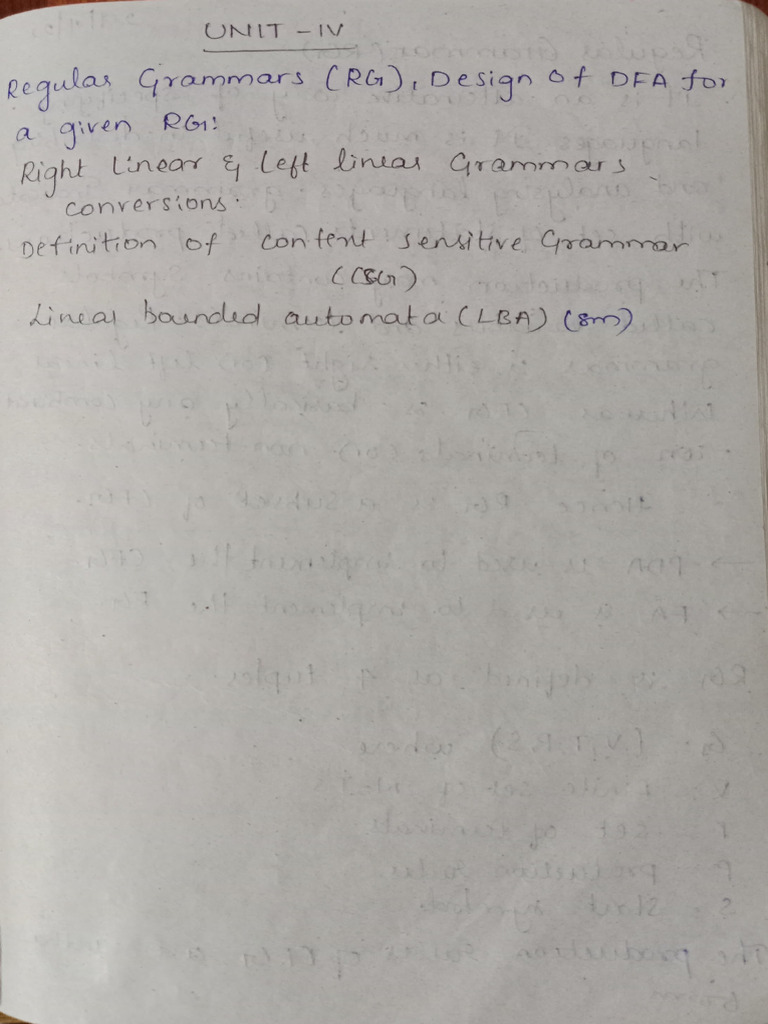 UNIT - IV
Regular Grammars (RG), Design of DFA for
a given RG:
Right Linear & Left linear Grammars
conversions.
Definition of content sensitive Grammar
(CSG)
Linear bounded automata (LBA) (8m)